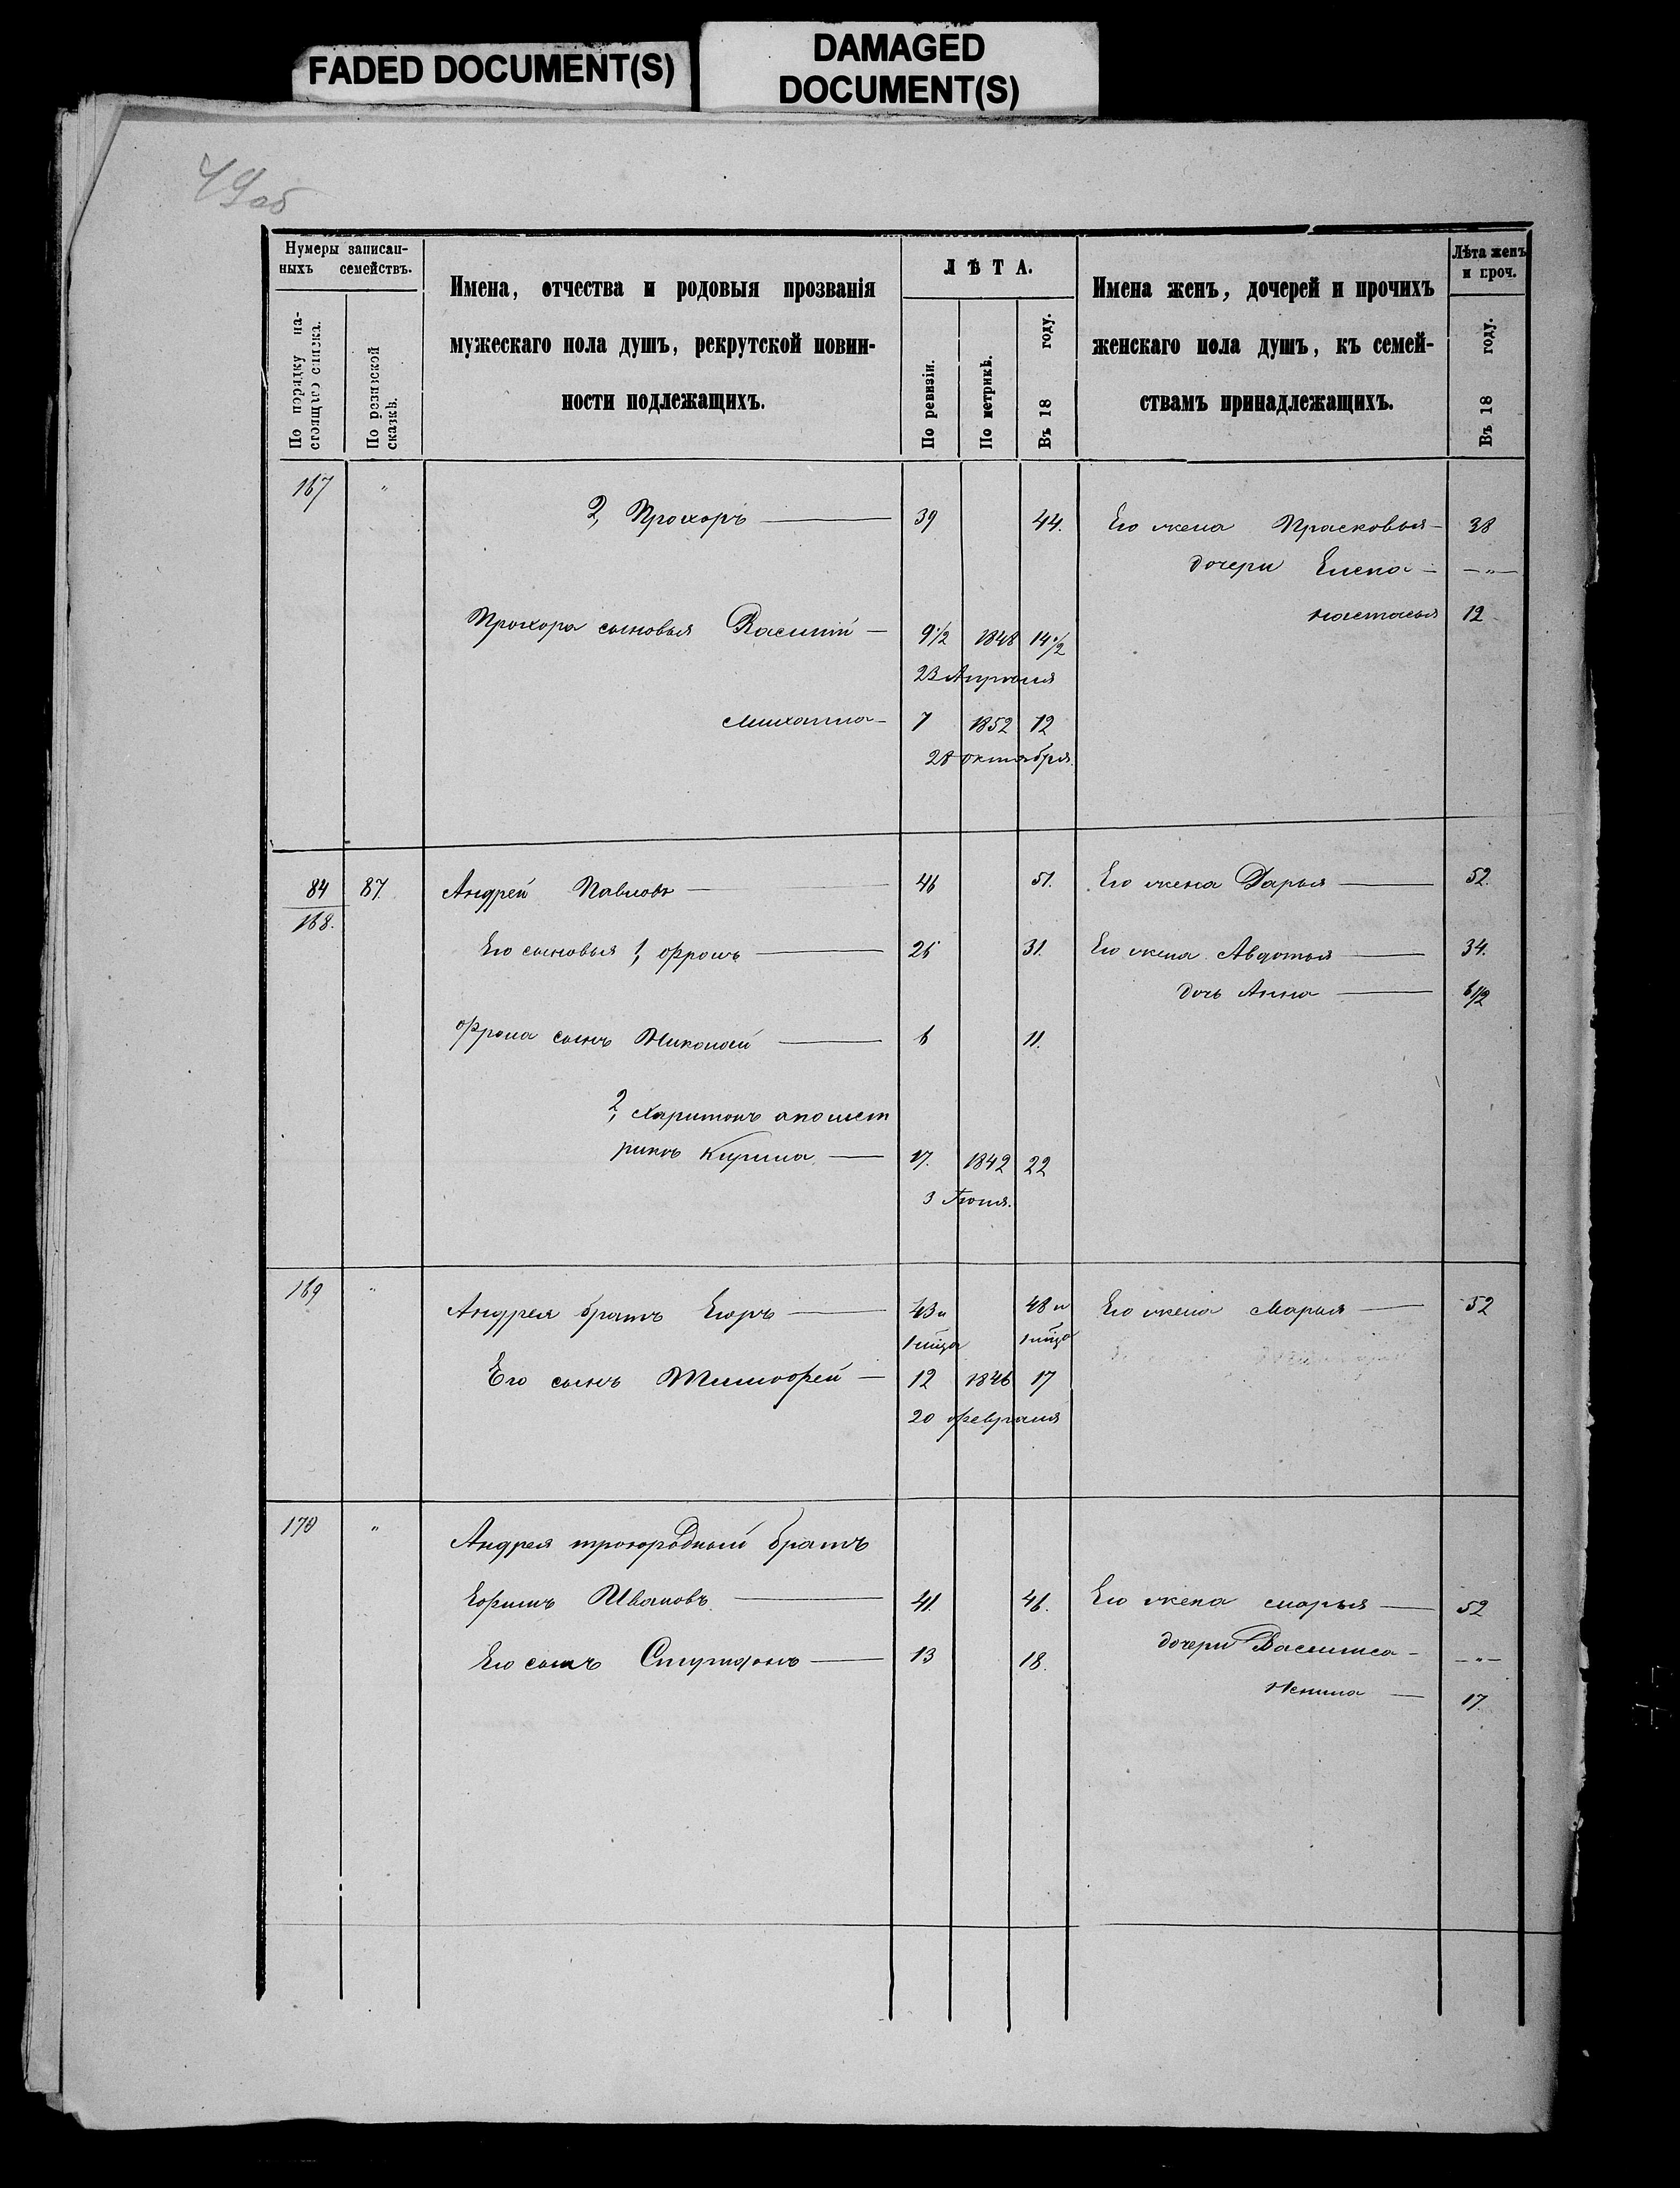 FADED DOCUMENT(S)
DAMAGED
DOCUMENT(S)
49об
Нумеры записан-
ныхъ семействъ.
По порядку на-
стоящаго списка.
По ревизской
сказкѣ.
Имена, отчества и родовыя прозванія
мужескаго пола душъ, рекрутской повин-
ности подлежащихъ.
ЛѢТА.
По ревизіи.
По метрикѣ.
Въ 18 году.
Имена женъ, дочерей и прочихъ
женскаго пола душъ, къ семей-
ствамъ принадлежащихъ.
Лѣта женъ
и проч.
Въ 18 году.
167 "
2, Прохоръ — 39 44. Его жена Прасковья — 38
дочери Елена — — " —
Настасья 12
Прохора сыновья Василій — 9 1/2 1848 14 1/2
23 Апрѣля
Михаила — 7 1852 12
28 октября.
84 87. Андрей Павловъ — 46 51. Его жена Дарья — 52.
168.
Его сыновья 1, Фролъ — 26 31. Его жена Авдотья — 34.
дочь Анна — 6 1/2
Фрола сынъ Николай — 6 11.
2, Харитонъ а по мет
рикѣ Кирила — 17. 1842 22
3 Іюня.
169 " Андрея братъ Егоръ — 43 и 48 и Его жена Марья — 52
1 мѣца 1 мѣца
Его сынъ Тимофей — 12 1846 17
20 февраля
170 " Андрея троюродный братъ
Ефимъ Ивановъ — 41. 46. Его жена Марья — 52
Его сынъ Спиридонъ — 13 18. дочери Василиса — — " —
Ненила — 17